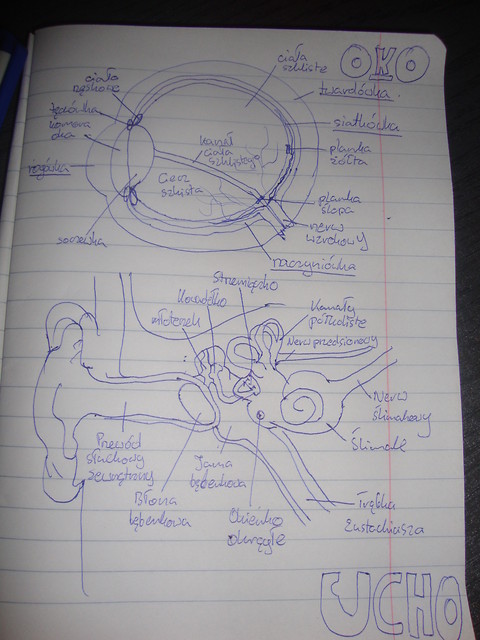 OKO
ciało
szkliste
ciało
rzęskowe
twardówka
tęczówka
siatkówka
komora
oka
kanał
ciała
szklistego
plamka
żółta
rogówka
Ciecz
szklista
plamka
ślepa
nerw
wzrokowy
soczewka
naczyniówka
Strzemiączko
Kowadełko
młoteczek
Kanały
półkoliste
Nerw przedsionkowy
Nerw
ślimakowy
Ślimak
Przewód
słuchowy
zewnętrzny
Jama
bębenkowa
Błona
bębenkowa
Okienko
okrągłe
Trąbka
Eustachiusza
UCHO